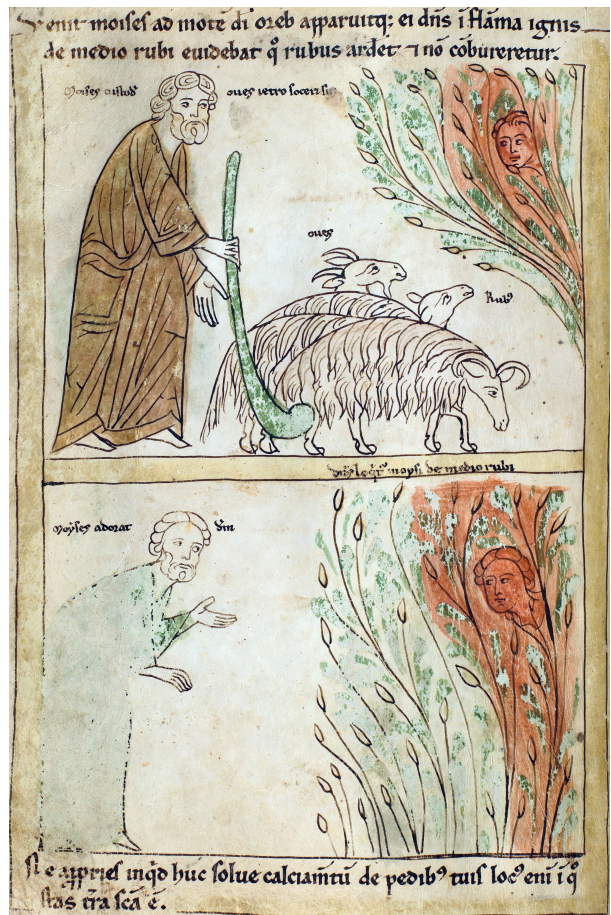 Venit moises ad motē di oreb apparuitq; ei dn̄s ī flāma ignis
de medio rubi evidebat q̊ rubus ardet ⁊ nō cōbureretur.
Moises custod oves ietro soceri sui
oves
Rubꝰ
dn̄s loqr̄ moysi de medio rubi
Moyses adorat dn̄m
Ne appries inqd huc solve calciam̄tū de pedibꝰ tuis locꝰ enī ī q̊
stas t̄ra sc̄a ē.